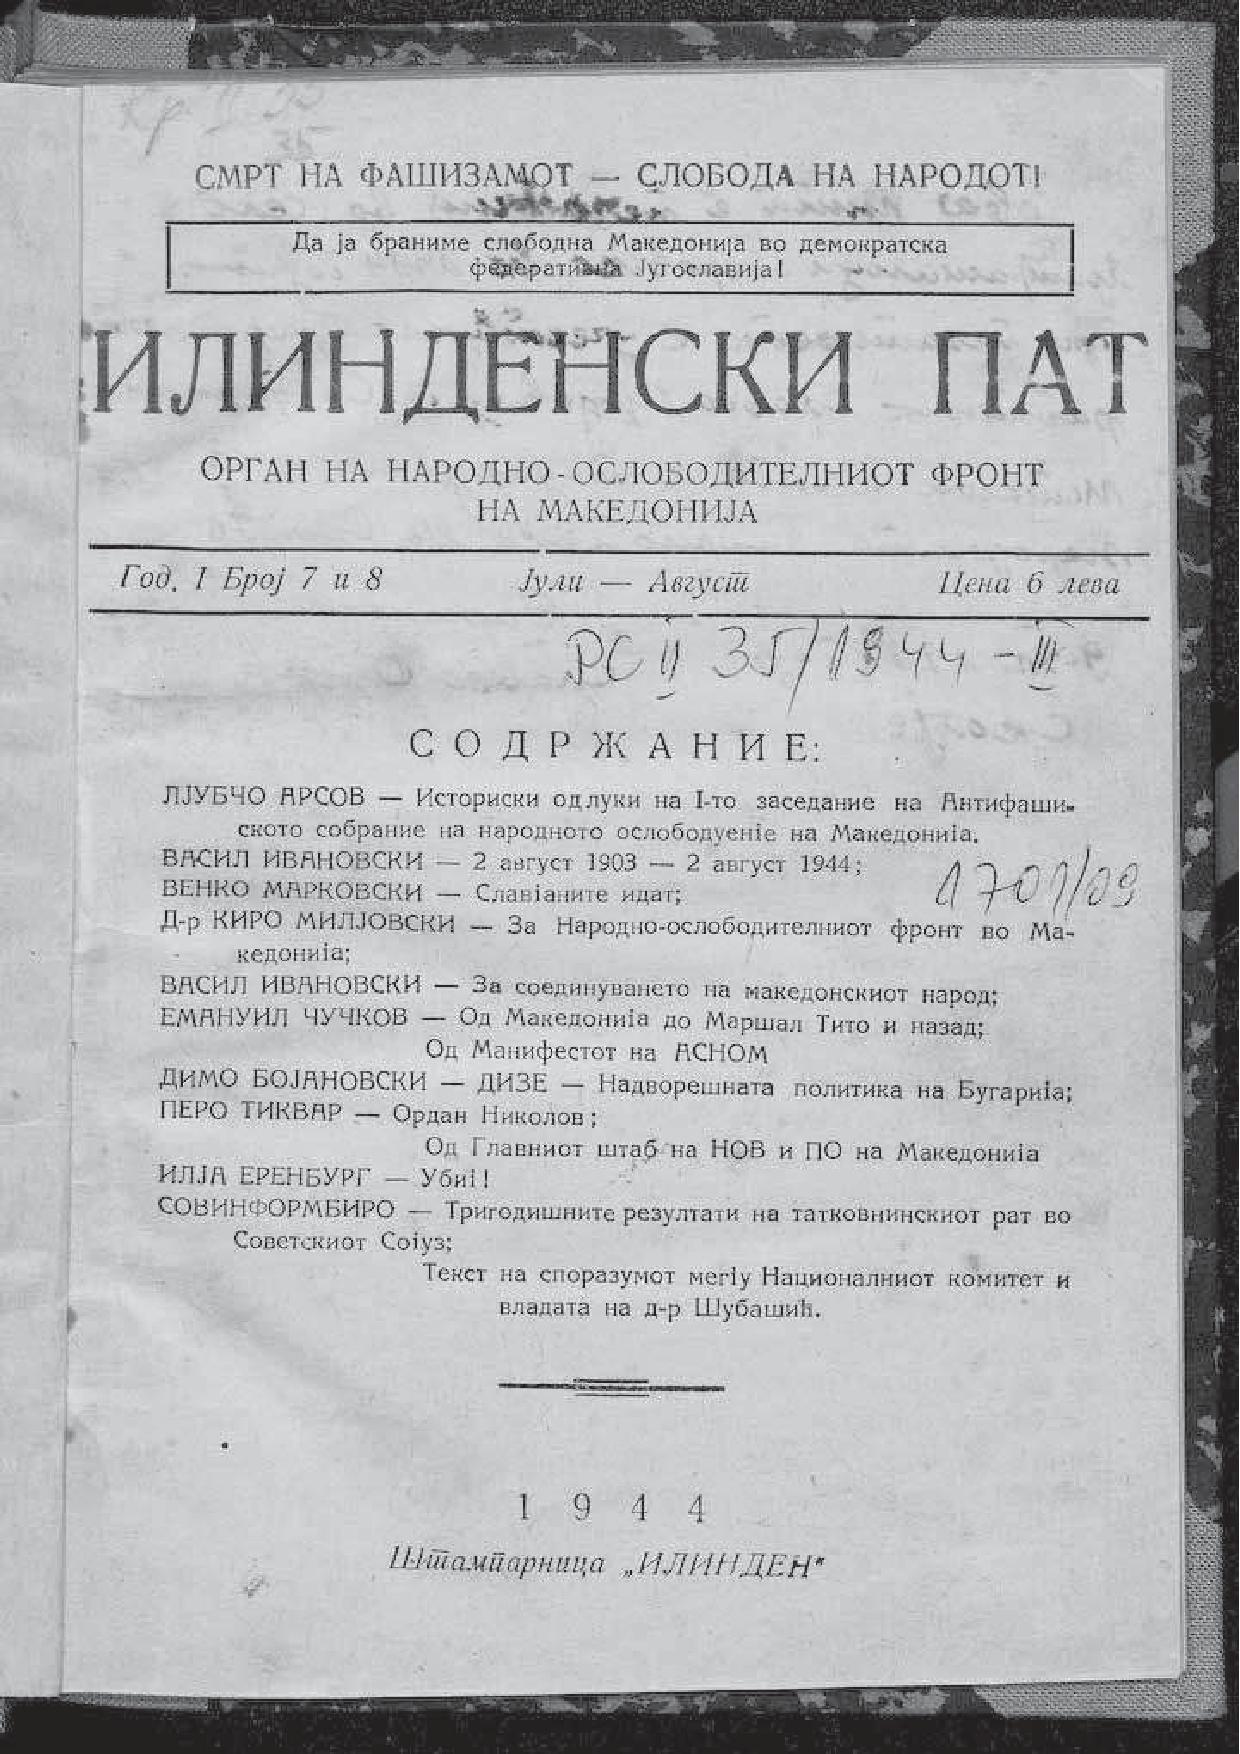 СМРТ НА ФАШИЗАМОТ — СЛОБОДА НА НАРОДОТ!
Да ја браниме слободна Македонија во демократска
федеративна Југославија!
ИЛИНДЕНСКИ ПАТ
ОРГАН НА НАРОДНО-ОСЛОБОДИТЕЛНИОТ ФРОНТ
НА МАКЕДОНИЈА
Год. I Број 7 и 8 Јули — Август Цена 6 лева
РС II 35/1944 - III
СОДРЖАНИЕ:
ЛЈУБЧО АРСОВ — Историски одлуки на I-то заседание на Антифаши-
ското собрание на народното ослободуеніе на Македониіа.
ВАСИЛ ИВАНОВСКИ — 2 август 1903 — 2 август 1944;
1701/09
ВЕНКО МАРКОВСКИ — Славіаните идат;
Д-р КИРО МИЛЈОВСКИ — За Народно-ослободителниот фронт во Ма-
кедониіа;
ВАСИЛ ИВАНОВСКИ — За соединуването на македонскиот народ;
ЕМАНУИЛ ЧУЧКОВ — Од Македониіа до Маршал Тито и назад;
Од Манифестот на АСНОМ
ДИМО БОЈАНОВСКИ — ДИЗЕ — Надворешната политика на Бугариіа;
ПЕРО ТИКВАР — Ордан Николов;
Од Главниот штаб на НОВ и ПО на Македониіа
ИЛЈА ЕРЕНБУРГ — Убиі!
СОВИНФОРМБИРО — Тригодишните резултати на татковнинскиот рат во
Советскиот Соіуз;
Текст на споразумот меѓіу Националниот комитет и
владата на д-р Шубашиħ.
1944
Штампарница „ИЛИНДЕН"